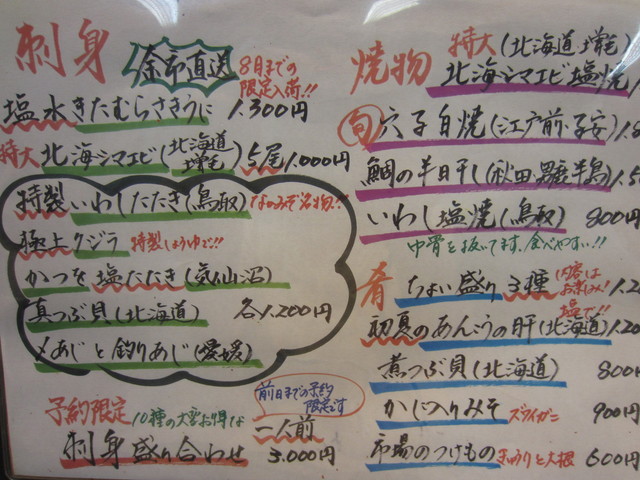 刺身
余市直送
8月までの
限定入荷!!
塩水きたむらさきうに 1.300円
特大 北海シマエビ(北海道 増毛) 5尾 1.000円
特製いわしたたき(鳥取) なめみそ名物!!
極上クジラ 特製しょうゆで!!
かつを塩たたき(気仙沼)
真つぶ貝(北海道) 各1.200円
〆あじと釣りあじ(愛媛)
予約限定
前日までの予約
限定です
刺身盛り合わせ 一人前 3.000円
焼物
特大(北海道 増毛)
北海シマエビ塩焼
旬 穴子白焼(江戸前・子安)
鯛の半日干し(秋田・男鹿半島)
いわし塩焼(鳥取) 800円
中骨を抜いてます。食べやすい!!
肴 ちょい盛り3種 (内容は お楽しみ!
塩で!!
初夏のあんこうの肝(北海道)
煮つぶ貝(北海道) 800
かに入りみそ ズワイガニ 900円
市場のつけもの きゅうりと大根 600円